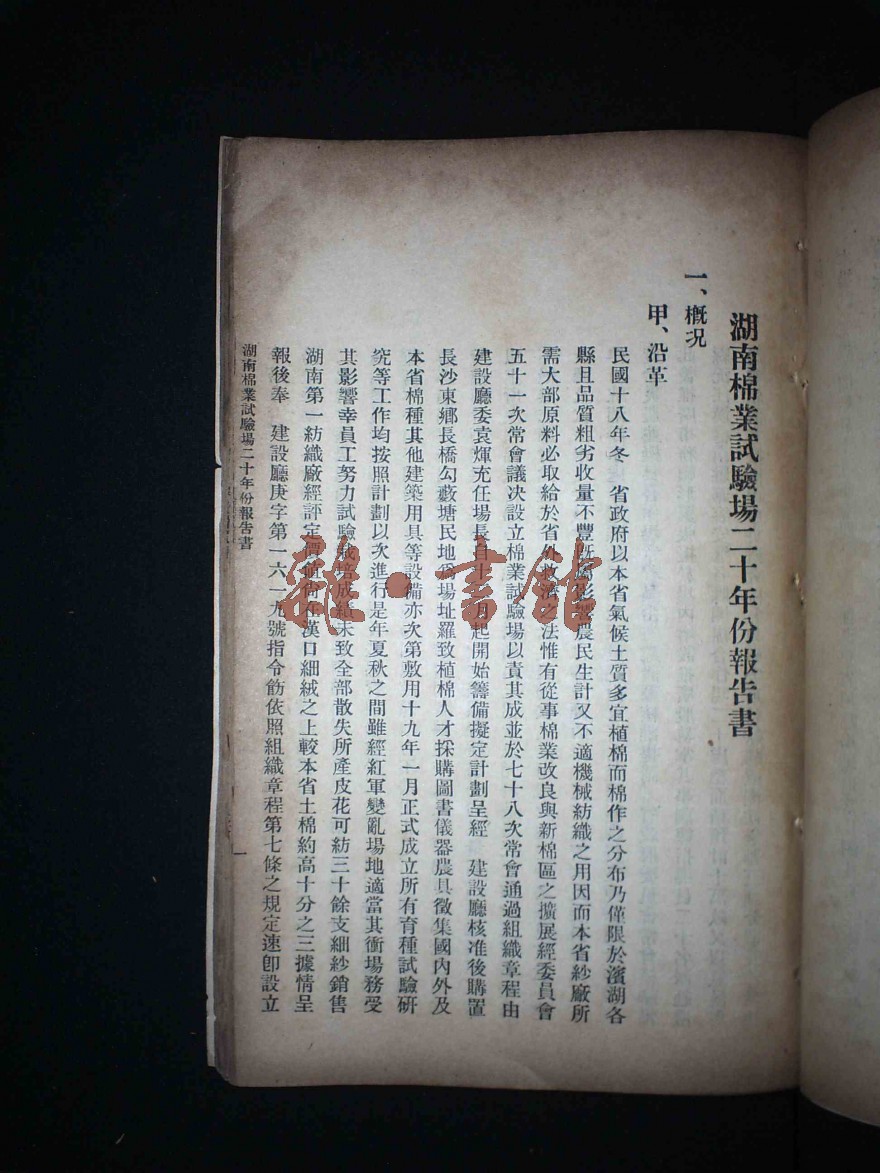 湖南棉業試驗場二十年份報告書
一、概況
甲、沿革
民國十八年冬 省政府以本省氣候土質多宜植棉而棉作之分布乃僅限於濱湖各
縣且品質粗劣收量不豐既屬影響農民生計又不適機械紡織之用因而本省紗廠所
需大部原料必取給於省外救濟之法惟有從事棉業改良與新棉區之擴展經委員會
五十一次常會議決設立棉業試驗場以責其成並於七十八次常會通過組織章程由
建設廳委袁煇充任場長自十 月起開始籌備擬定計劃呈經 建設廳核准後購置
長沙東鄉長橋勾藪塘民地爲場址羅致植棉人才採購圖書儀器農具徵集國內外及
本省棉種其他建築用具等設備亦次第敷用十九年一月正式成立所有育種試驗研
究等工作均按照計劃以次進行是年夏秋之間雖經紅軍變亂場地適當其衝場務受
其影響幸員工努力試驗栽培成績未致全部散失所產皮花可紡三十餘支細紗銷售
湖南第一紡織廠經評定價値尚在漢口細絨之上較本省土棉約高十分之三據情呈
報後奉 建設廳庚字第一六一九號指令飭依照組織章程第七條之規定速卽設立
湖南棉業試驗場二十年份報告書
一
雜·書館